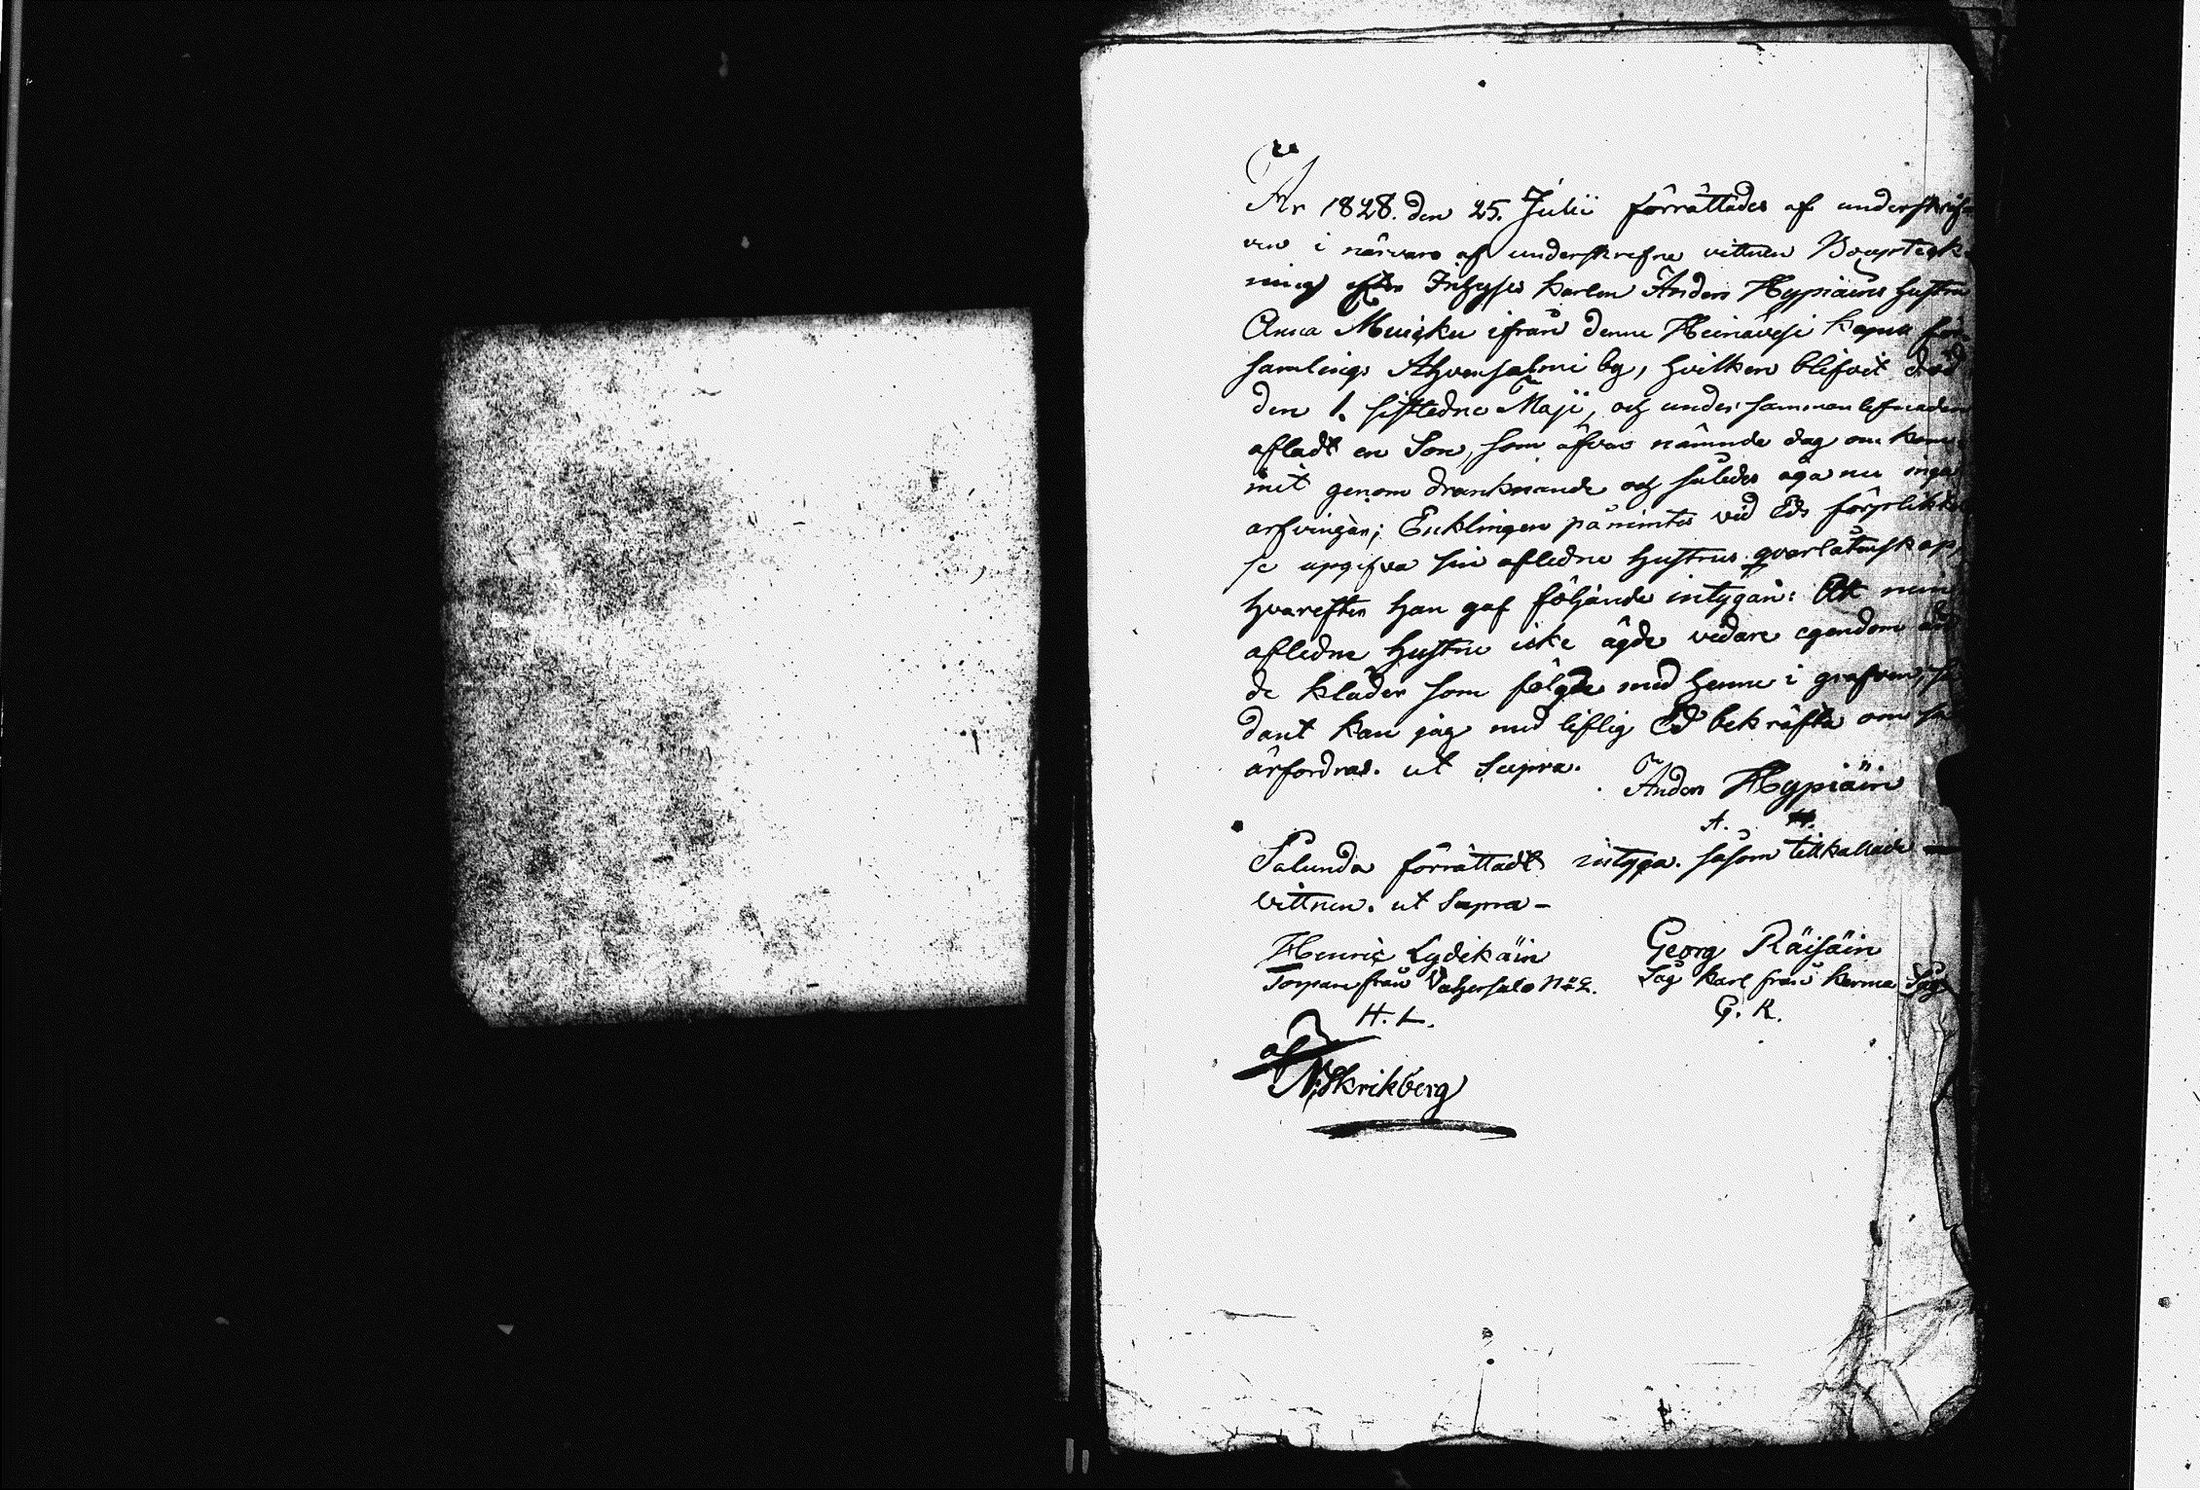 År 1828. den 25. Julii förrättades af underskrif
ven i närvaro af underskrefne vittnen Bouptek
ning efter Inhyses karlen Anders Hypiäins hustru
Anna Muisku ifrån denne Heinävesi kapell för
samlings Ahvensalmi by, hvilken blifvit död
den 1. sistledne Maji, och under sammanlefnaden
afladt en Son, som äfven nämnde dag om kom
mit genom dranknande och således äga nu inga
arfvingar; Enklingen påmintes vid Eds förplikte
se upgifva sin afledne hustrus qvarlåtenskap,
hvarefter han gaf följande intygan: Att min
afledne hustru icke ägde vidare egendom än
de kläder som fölgde med henne i grafven, så
dant kan jag med liflig Ed bekräfta om så
ärfordras. ut Supra.
Anders Hypiäin
A. H.
Sålunda förrättadt intyga. såsom tillkallade
vittnen. ut Supra -
Henric Lydikäin
Georg Räisäin
Torpare från Vahersalo No 2.
Såg karl från Kerma Såg
H. L.
G. R.
af
N. Skrikberg